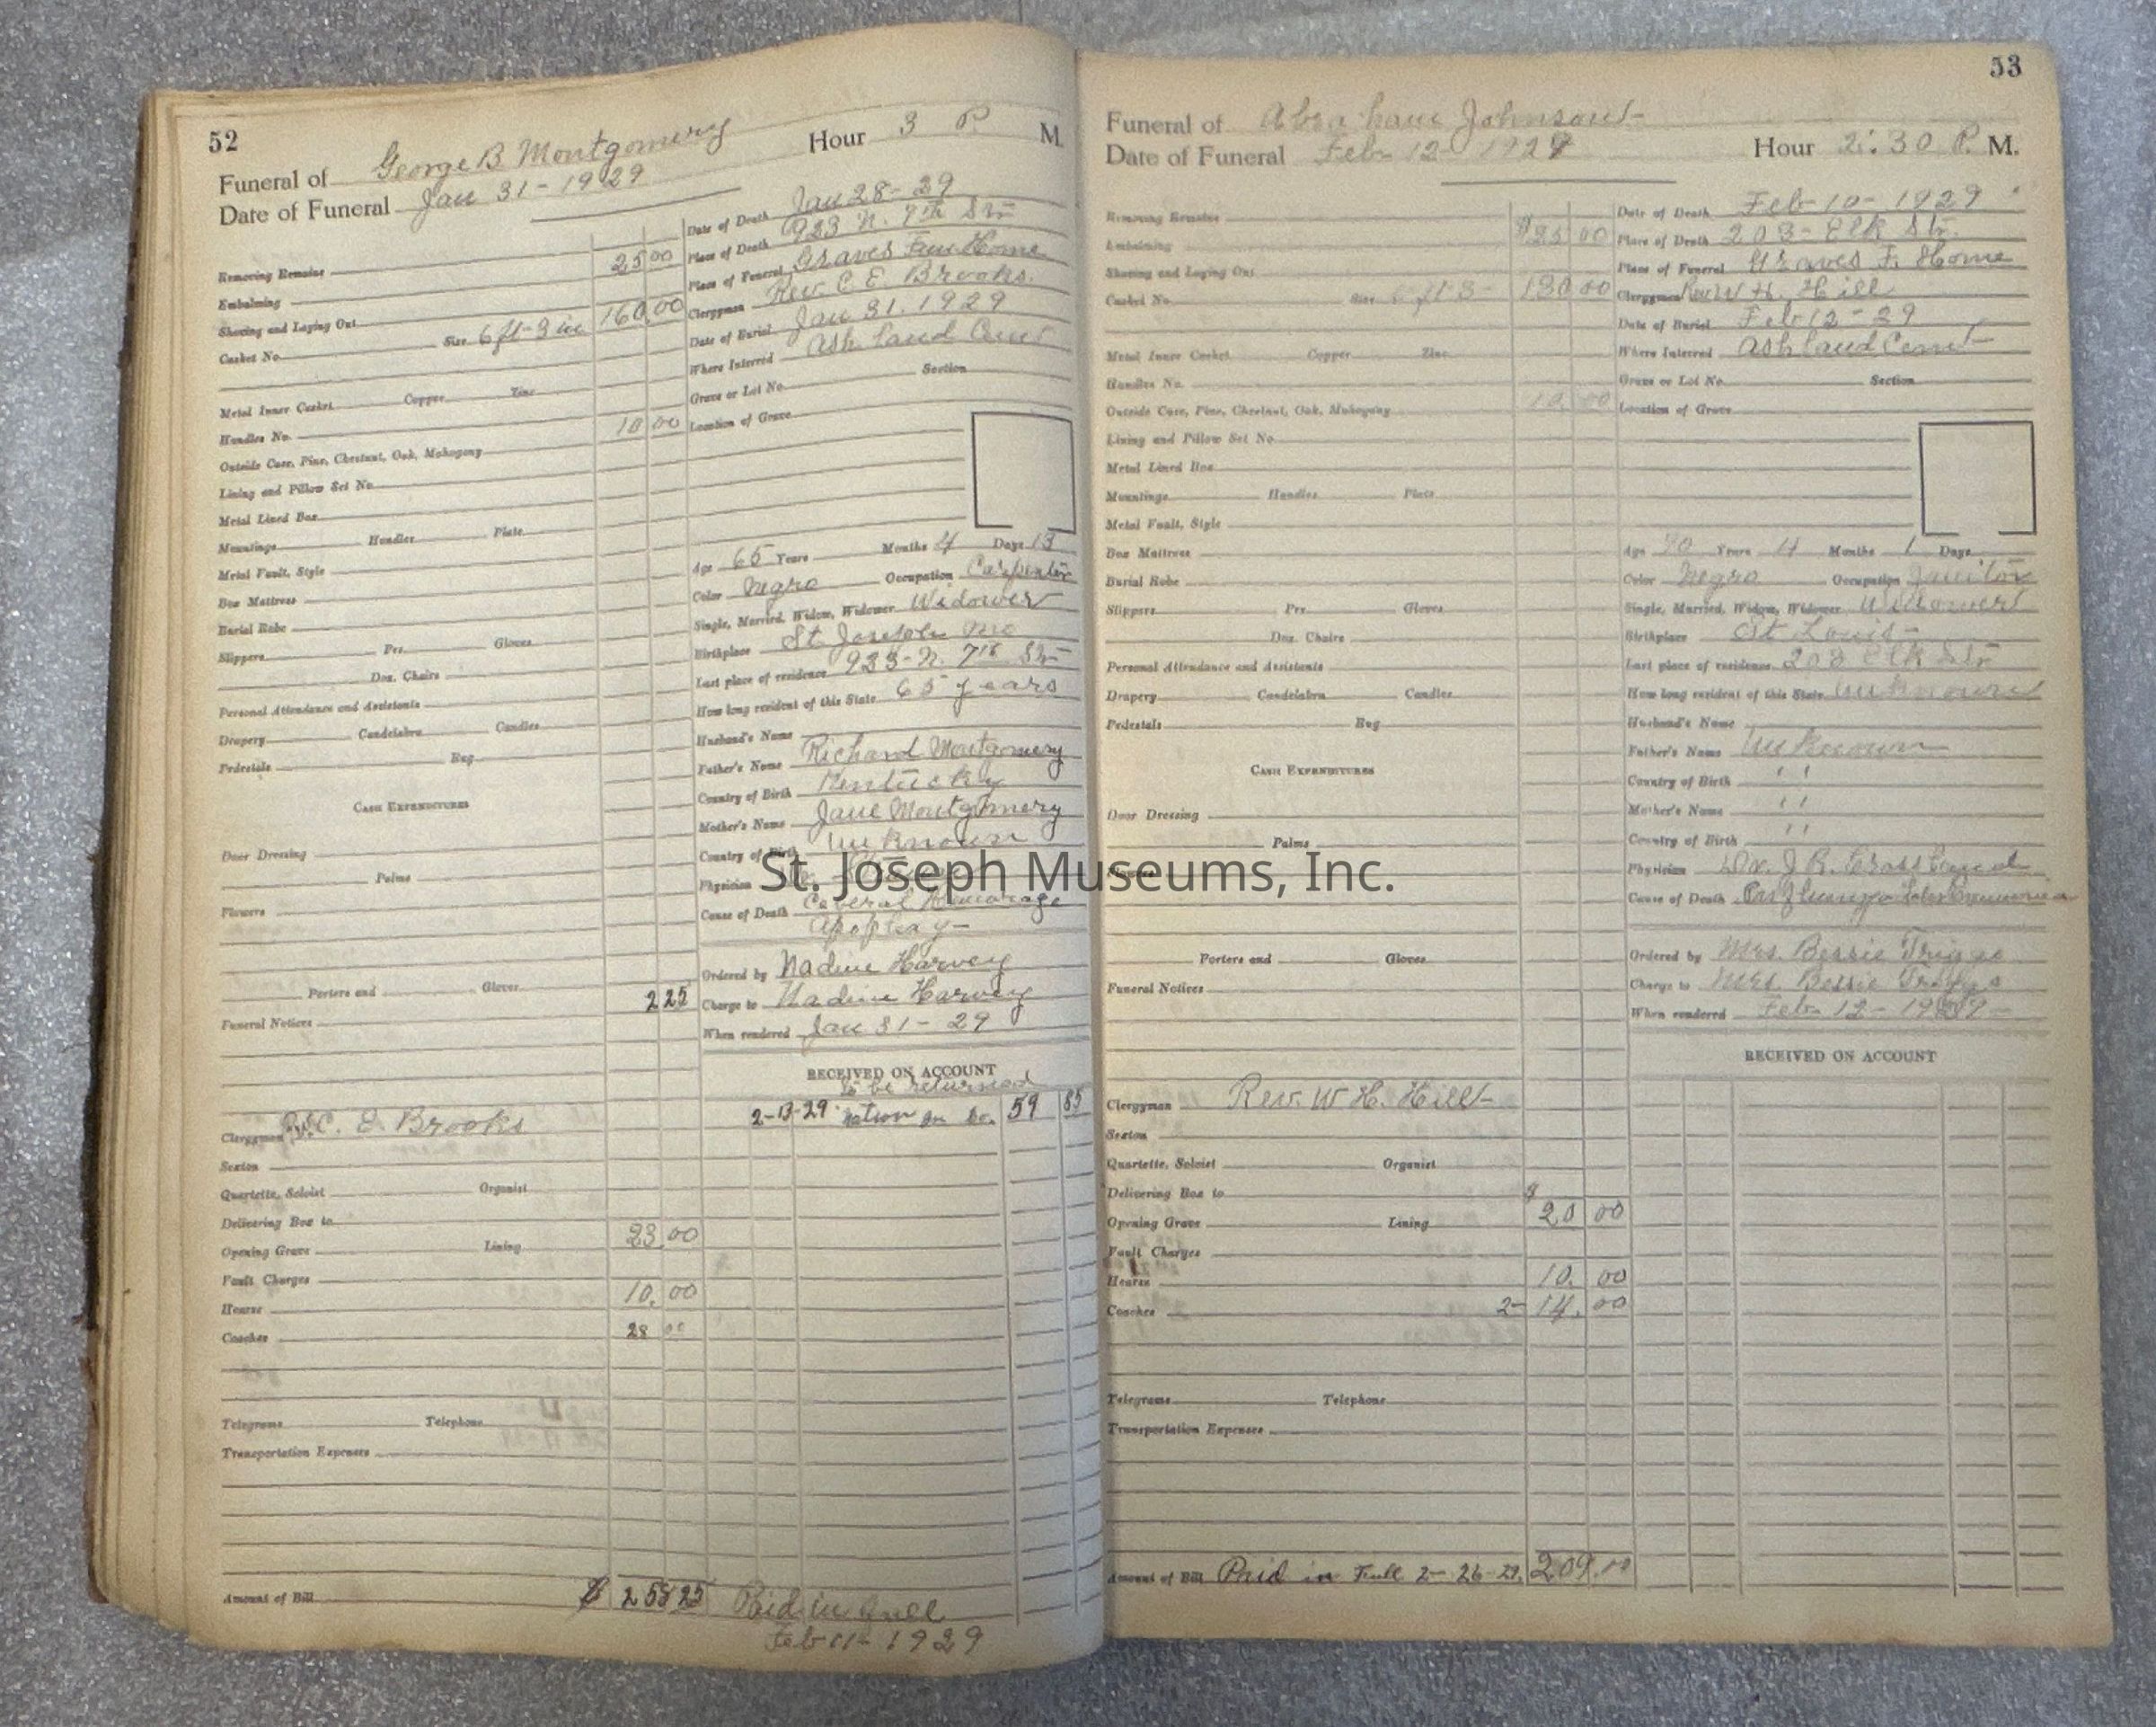 52
Funeral of George B Montgomery Hour 3 P. M.
Date of Funeral Jan 31-1929
Date of Death Jan 28-29
Removing Remains
Place of Death 923 N. 7th Str
Embalming 25 00
Place of Funeral Graves Fun Home
Shaving and Laying Out
Clergyman Rev. C E. Brooks.
Casket No. Size 6 ft-3 in 160.00
Date of Burial Jan 31. 1929
Where Interred Ash land Cem
Metal Inner Casket Copper Zinc
Grave or Lot No. Section
Handles No.
Location of Grave
Outside Case, Pine, Chestnut, Oak, Mahogany 10 00
Lining and Pillow Set No.
Metal Lined Box
Mountings Handles Plate
Metal Vault, Style
Age 65 Years Months 4 Days 13
Box Mattress
Color Negro Occupation Carpenter
Burial Robe
Single, Married, Widow, Widower Widower
Slippers Prs. Gloves
Birthplace St. Joseph Mo
Doz. Chairs
Last place of residence 923-N. 7th Str
Personal Attendance and Assistants
How long resident of this State 65 years
Drapery Candelabra Candles
Husband's Name
Pedestals Rug
Father's Name Richard Montgomery
Country of Birth Kentucky
CASH EXPENDITURES
Mother's Name Jane Montgomery
Country of Birth unknown
Door Dressing
Physician
Palms
Cause of Death
Flowers
Ordered by Nadine Harvey
Porters and Gloves
Charge to Nadine Harvey
Funeral Notices 2 25
When rendered Jan 31-29
RECEIVED ON ACCOUNT
to be returned
2-13-29 59 85
Clergyman C. E. Brooks
Sexton
Quartette, Soloist Organist
Delivering Box to
Opening Grave Lining 23.00
Vault Charges
Hearse 10.00
Coaches 28 00
Telegrams Telephone
Transportation Expenses
Amount of Bill $ 258 25 Paid in full
Feb 11-1929
53
Funeral of Abraham Johnson
Date of Funeral Feb 12-1929 Hour 2:30 P. M.
Removing Remains
Date of Death Feb-10-1929
Embalming $25 00
Place of Death 203-Elk Str.
Shaving and Laying Out
Place of Funeral Graves F. Home
Casket No. Size 6 ft 3- 130 00
Clergyman Rev W H. Hill
Date of Burial Feb 12-29
Metal Inner Casket Copper Zinc
Where Interred Ashland Cem
Handles No.
Grave or Lot No. Section
Outside Case, Pine, Chestnut, Oak, Mahogany 10.00
Location of Grave
Lining and Pillow Set No.
Metal Lined Box
Mountings Handles Plate
Metal Vault, Style
Box Mattress
Age 70 Years 4 Months 1 Days
Burial Robe
Color Negro Occupation Janitor
Slippers Prs. Gloves
Single, Married, Widow, Widower Widower
Doz. Chairs
Birthplace St Louis-
Personal Attendance and Assistants
Last place of residence 203 Elk Str
Drapery Candelabra Candles
How long resident of this State unknown
Pedestals Rug
Husband's Name
Father's Name unknown
CASH EXPENDITURES
Country of Birth " "
Mother's Name " "
Door Dressing
Country of Birth " "
Palms
Physician Dr. J. R.
Cause of Death
Ordered by Mrs. Bessie Triggs
Porters and Gloves
Charge to Mrs. Bessie Triggs
Funeral Notices
When rendered Feb-12-1929-
RECEIVED ON ACCOUNT
Clergyman Rev. W H. Hill
Sexton
Quartette, Soloist Organist
Delivering Box to
Opening Grave Lining $ 20 00
Vault Charges
Hearse 10. 00
Coaches 2- 14. 00
Telegrams Telephone
Transportation Expenses
Amount of Bill Paid in Full 2-26-29. 209.00
St. Joseph Museums, Inc.